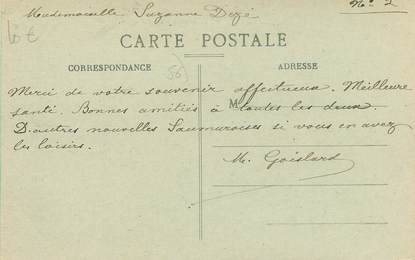 Mademoiselle Suzanne Dézé
No 2
6 €
CARTE POSTALE
CORRESPONDANCE
56
ADRESSE
Merci de votre souvenir affectueux. Meilleure
santé. Bonnes amitiés à toutes les deux.
M
D'autres nouvelles Saumuroises si vous en avez
les loisirs.
M. Goislard